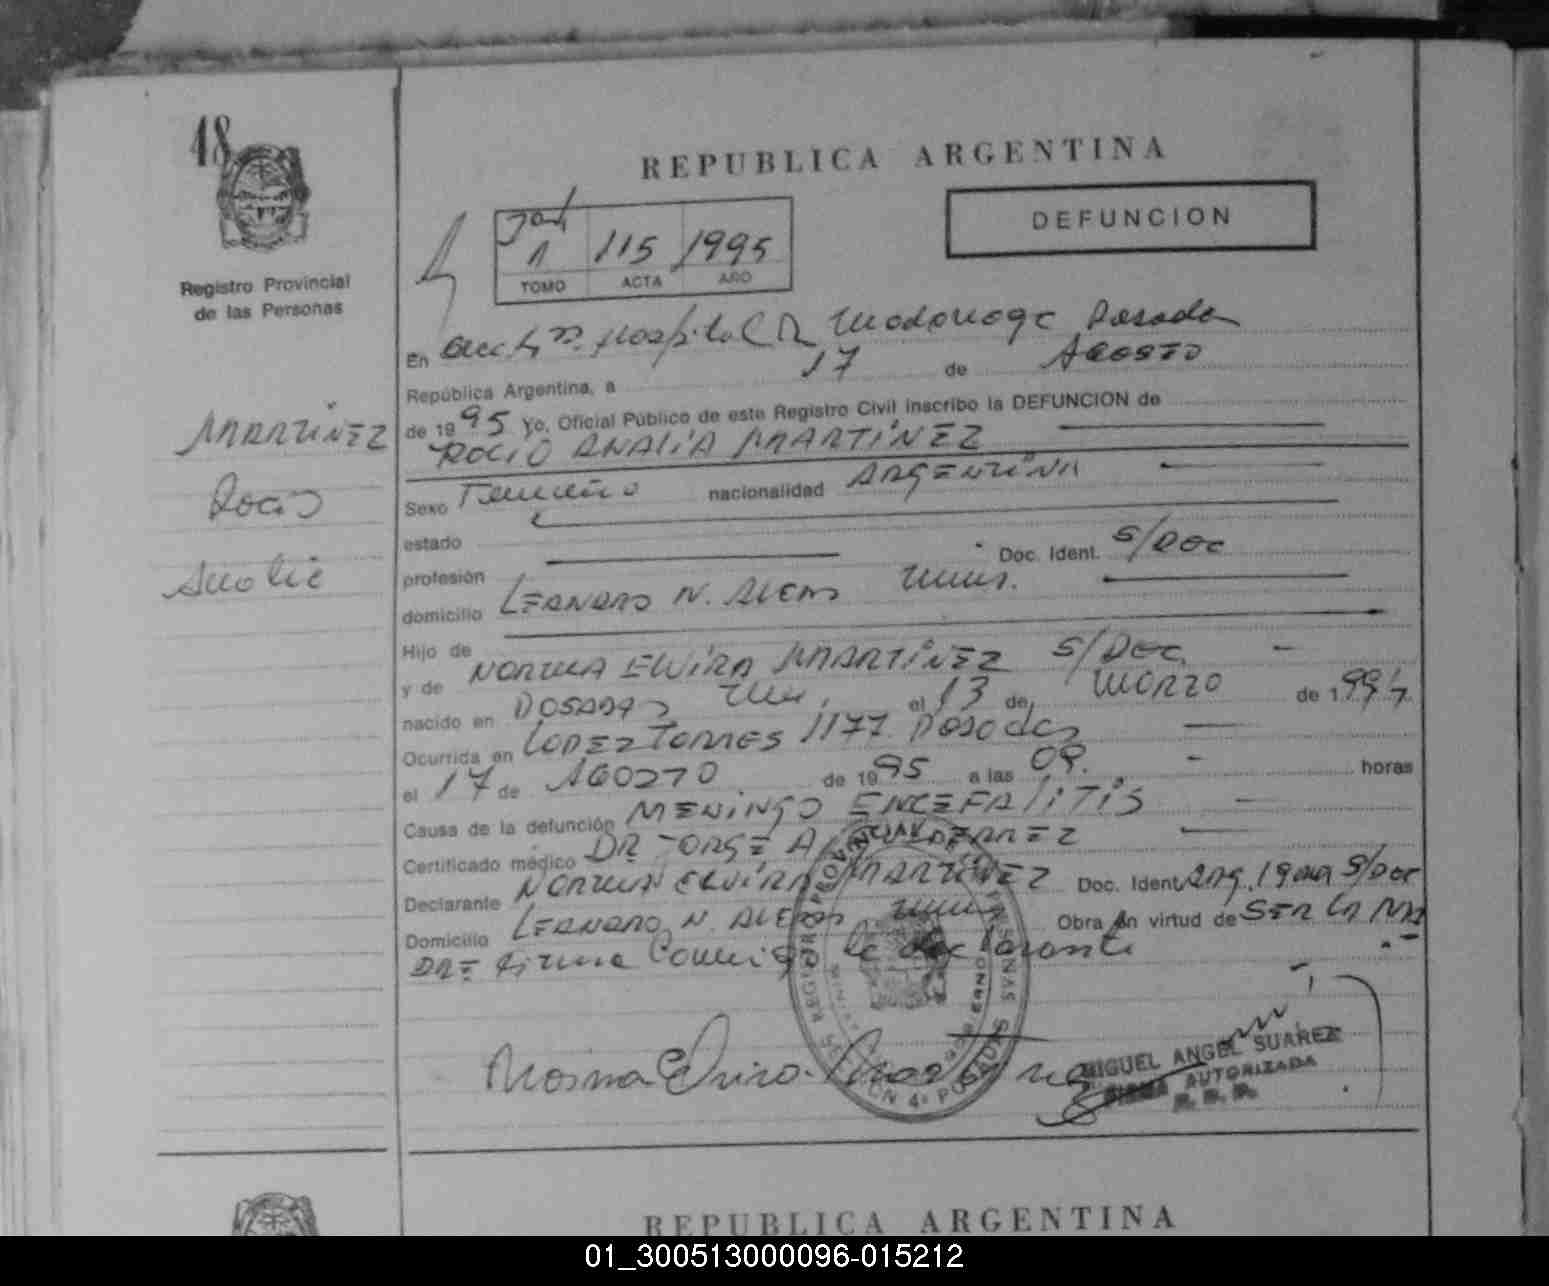 18
REPUBLICA ARGENTINA
DEFUNCION
1 115 1995
TOMO ACTA AÑO
Registro Provincial
de las Personas
MARTINEZ
Rocio
Analie
En Hospital R Madariaga Posadas
República Argentina, a 17 de AGOSTO
de 1995 Yo, Oficial Público de este Registro Civil inscribo la DEFUNCION de
ROCIO ANALIA MARTINEZ
Sexo Femenino nacionalidad ARGENTINA
estado
profesión Doc. Ident. S/DOC
domicilio LEANDRO N. ALEM Mnes.
Hijo de
y de NORMA ELVIRA MARTINEZ S/DOC
nacido en POSADAS el 13 de MARZO de 199
Ocurrida en LOPEZ TORRES 1177 Posadas
el 17 de AGOSTO de 1995 a las 09. horas
Causa de la defunción MENINGO ENCEFALITIS
Certificado médico DR JORGE A
Declarante NORMA ELVIRA MARTINEZ Doc. Ident Arg. S/Doc
Domicilio LEANDRO N. ALEM Mnes Obra en virtud de SER LA MA
DRE firma Conmigo la declarante
Norma Elvira
REGISTRO PROVINCIAL PERSONAS
SECCION 4ª POSADAS
MIGUEL ANGEL SUAREZ
FIRMA AUTORIZADA
REPUBLICA ARGENTINA
01_300513000096-015212